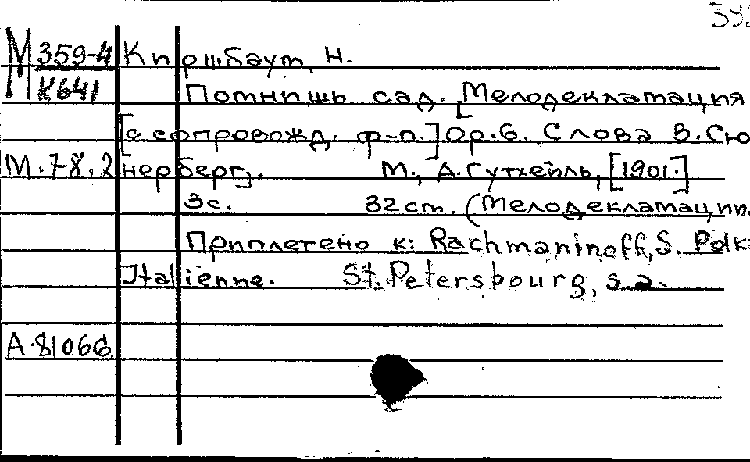 М 359-4 Киршбаум, Н.
К641 Помнишь сад. [Мелодекламация
[с сопровожд. ф-п.] Op.6. Слова В. Сю
М.7-8.2 нерберг]. М., А. Гутхейль, [1901.]
3с. 32 cm. (Мелодекламации.
Приплетено к: Rachmaninoff, S. Polk
Italienne. St. Petersbourg, s.a.
А.81066